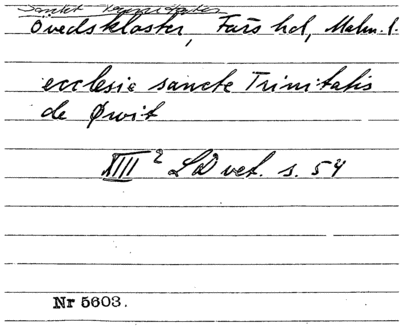 Sankt Trinitatis
Övedskloster, Färs hd, Malm. l.
ecclesia sancte Trinitatis
de Øwit
XIII 2 LD vet. s. 54
Nr 5603.